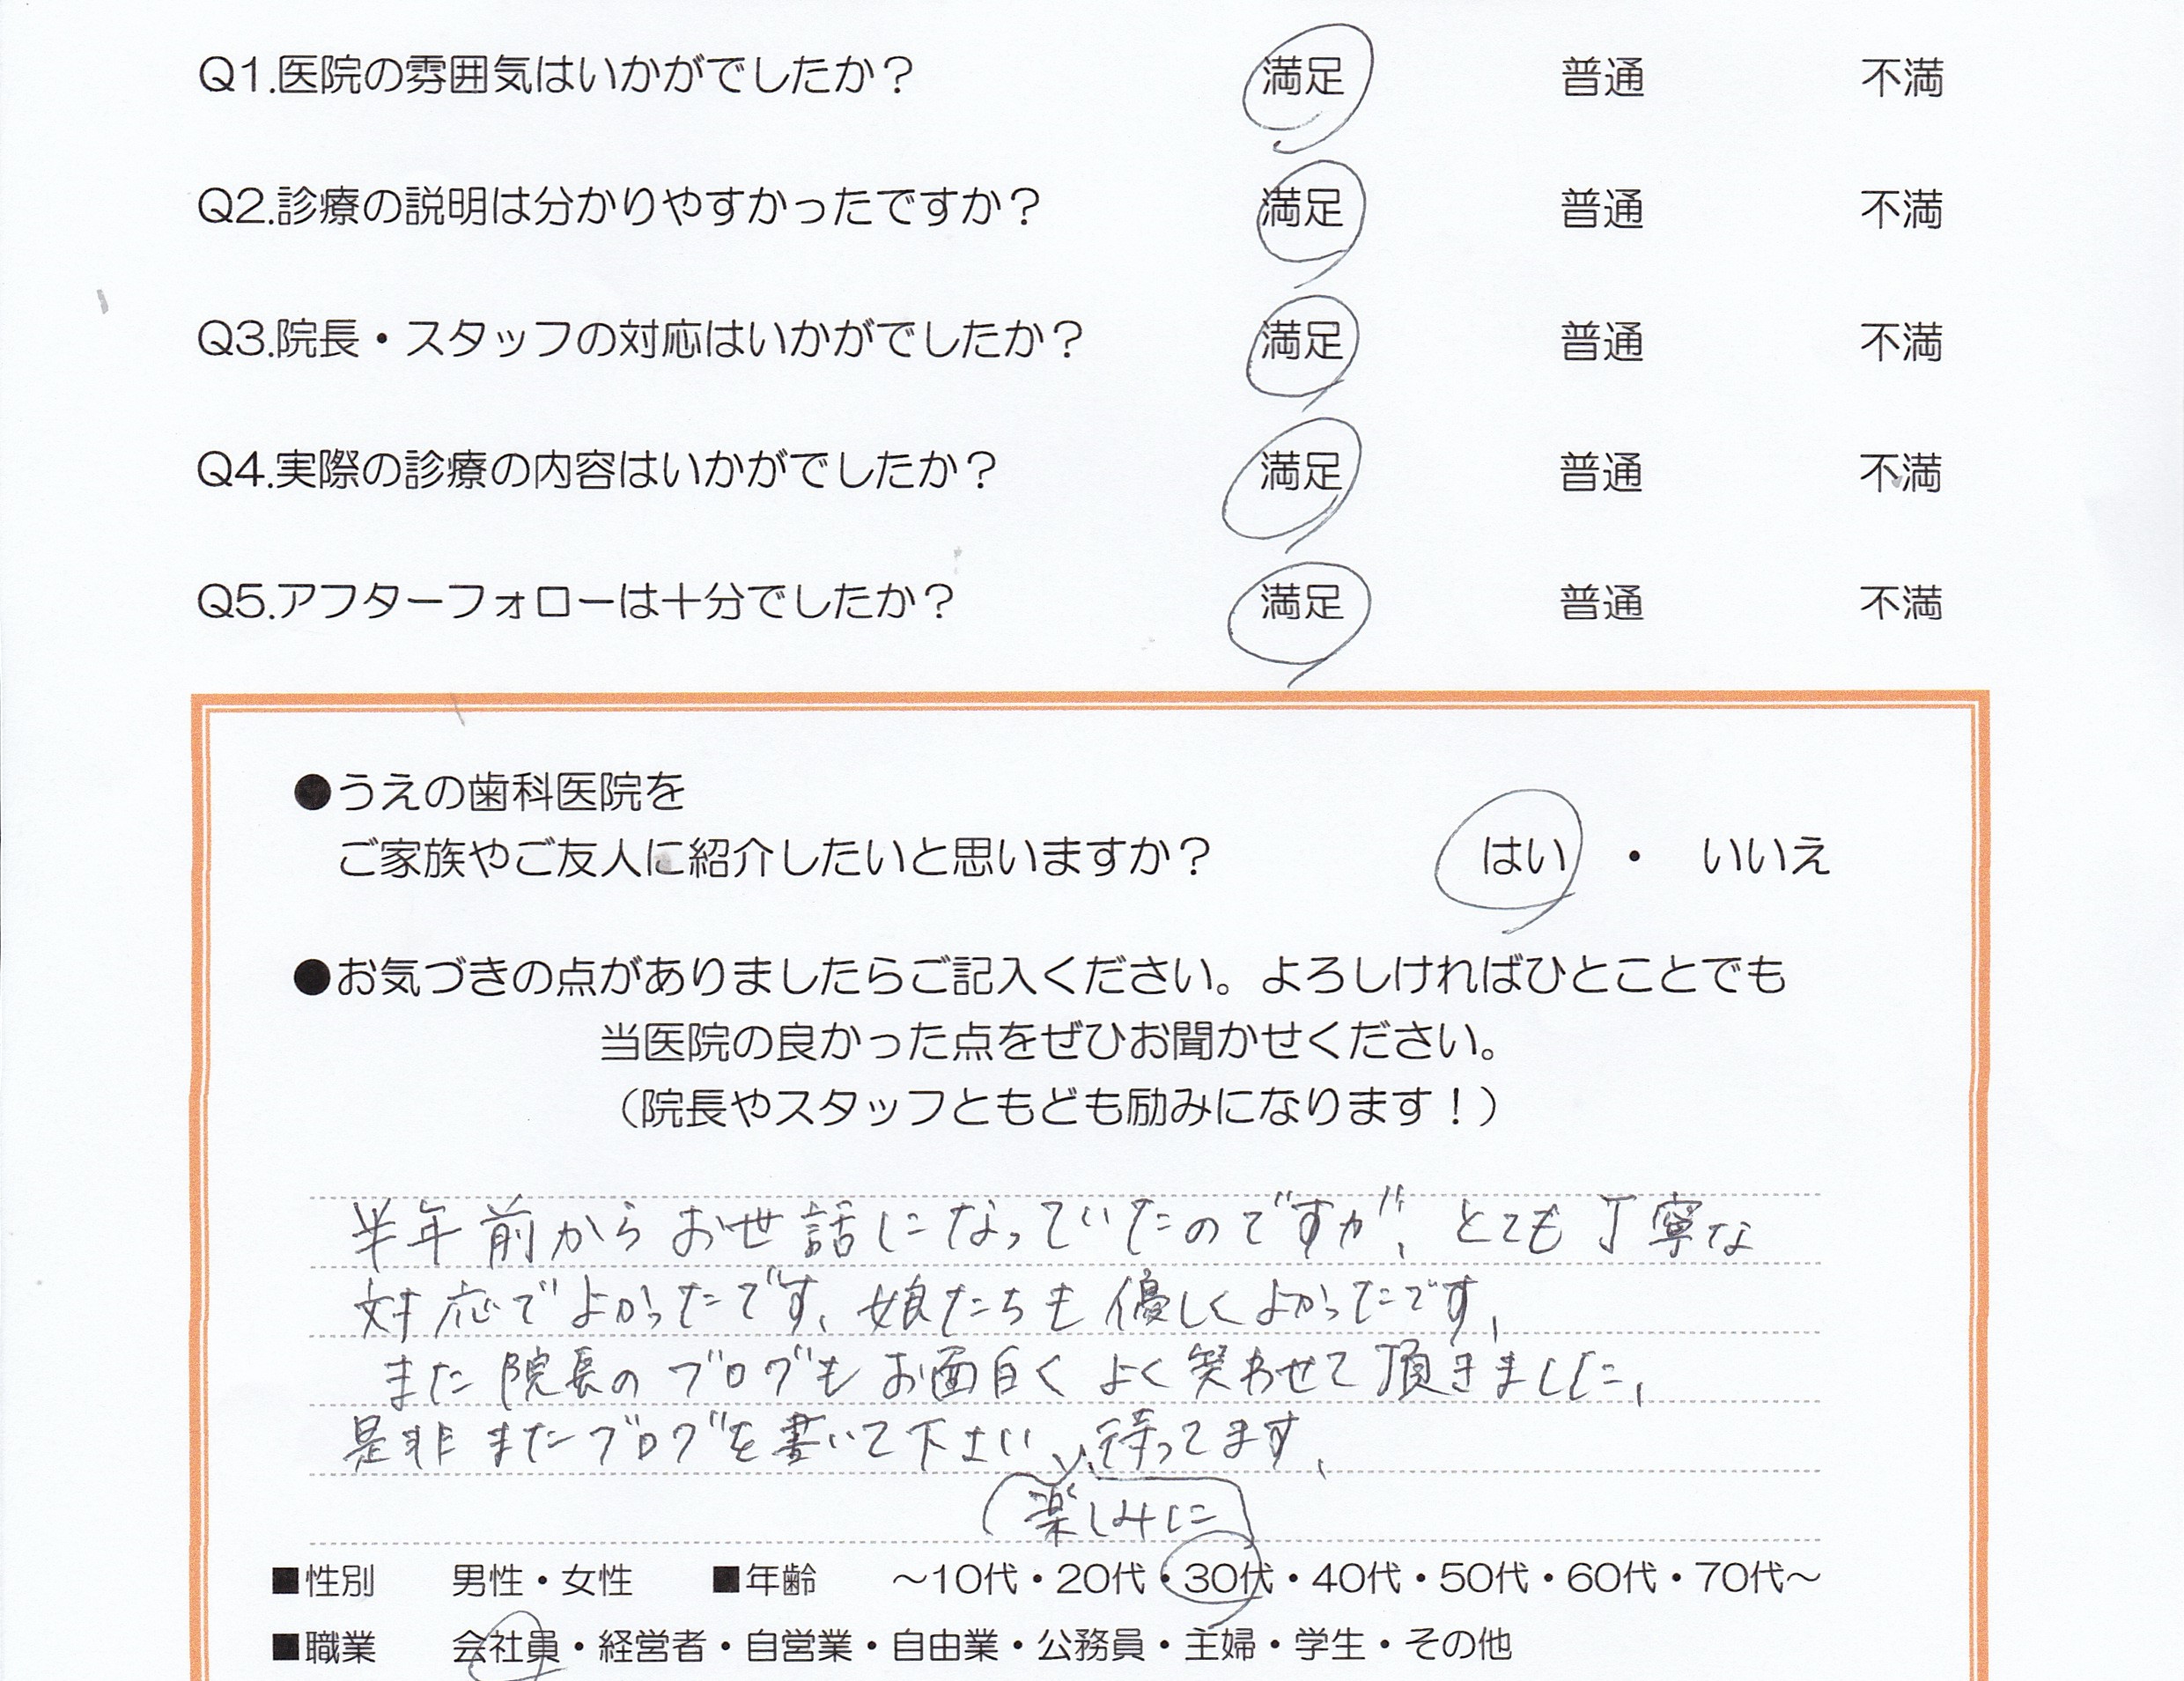 Q1.医院の雰囲気はいかがでしたか？ 満足 普通 不満
Q2.診療の説明は分かりやすかったですか？ 満足 普通 不満
Q3.院長・スタッフの対応はいかがでしたか？ 満足 普通 不満
Q4.実際の診療の内容はいかがでしたか？ 満足 普通 不満
Q5.アフターフォローは十分でしたか？ 満足 普通 不満
●うえの歯科医院を
ご家族やご友人に紹介したいと思いますか？ はい ・ いいえ
●お気づきの点がありましたらご記入ください。よろしければひとことでも
当医院の良かった点をぜひお聞かせください。
（院長やスタッフともども励みになります！）
半年前からお世話になっていたのですが、とても丁寧な
対応でよかったです、娘たちも優しくよかったです、
また院長のブログもお面白くよく笑わせて頂きました、
是非またブログを書いて下さい、待ってます、
楽しみに
■性別 男性・女性 ■年齢 〜10代・20代・30代・40代・50代・60代・70代〜
■職業 会社員・経営者・自営業・自由業・公務員・主婦・学生・その他